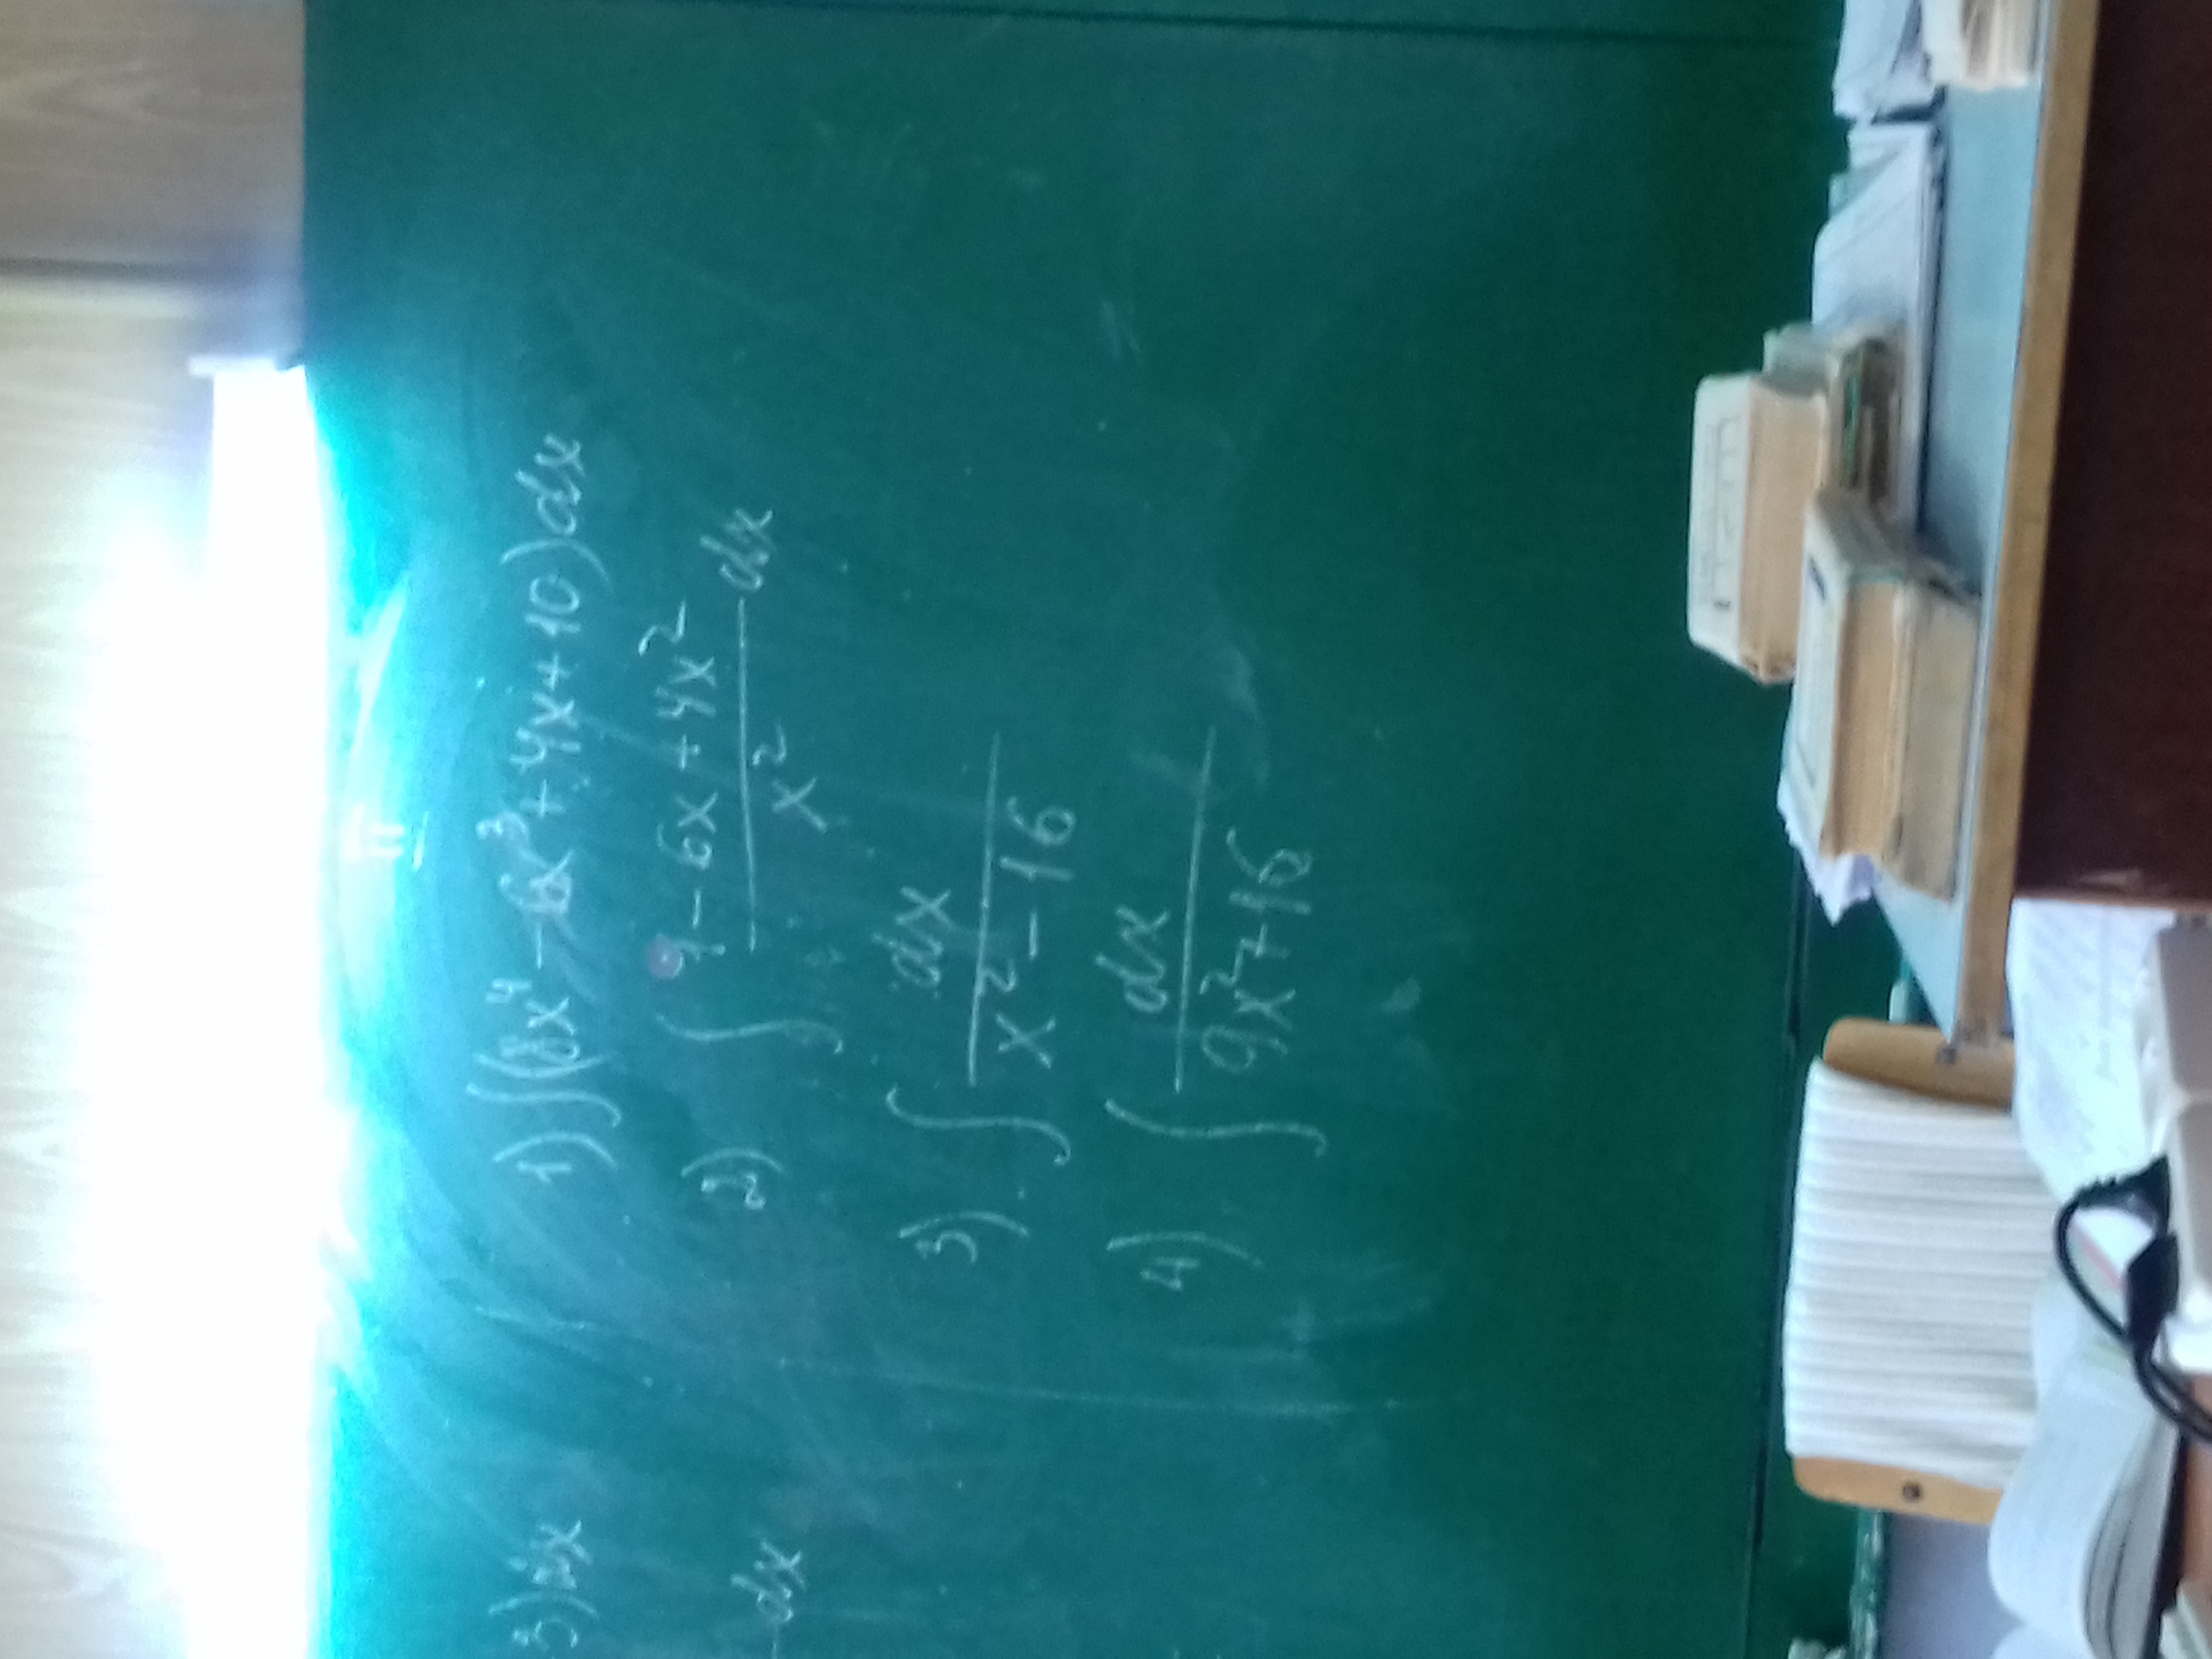 II
1) ∫(8x⁴ - 6x³ + 4x + 10)dx
2) ∫ (9 - 6x + 4x²)/x² dx
3) ∫ dx/(x² - 16)
4) ∫ dx/(9x² + 16)
3)dx
dx